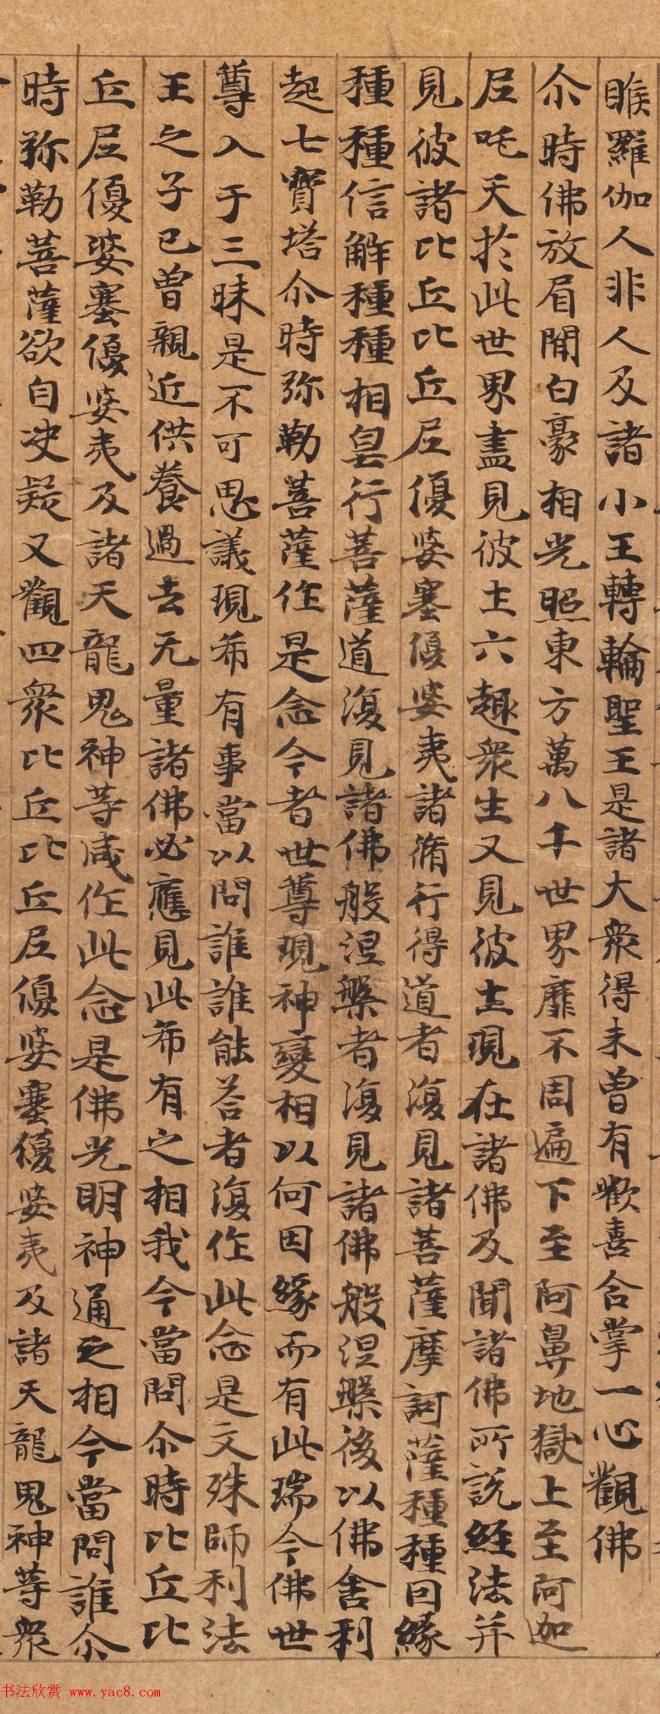 睺羅伽人非人及諸小王轉輪聖王是諸大衆得未曾有歡喜合掌一心觀佛
尒時佛放眉間白豪相光照東方萬八千世界靡不周遍下至阿鼻地獄上至阿迦
尼吒天於此世界盡見彼土六趣衆生又見彼土現在諸佛及聞諸佛所説經法并
見彼諸比丘比丘尼優婆塞優婆夷諸脩行得道者復見諸菩薩摩訶薩種種因緣
種種信解種種相皃行菩薩道復見諸佛般涅槃者復見諸佛般涅槃後以佛舍利
起七寶塔尒時弥勒菩薩作是念今者世尊現神變相以何因緣而有此瑞今佛世
尊入于三昧是不可思議現希有事當以問誰誰能荅者復作此念是文殊師利法
王之子已曾親近供養過去无量諸佛必應見此希有之相我今當問尒時比丘比
丘尼優婆塞優婆夷及諸天龍鬼神等咸作此念是佛光明神通之相今當問誰尒
時弥勒菩薩欲自決疑又觀四衆比丘比丘尼優婆塞優婆夷及諸天龍鬼神等衆
书法欣赏 www.yac8.com